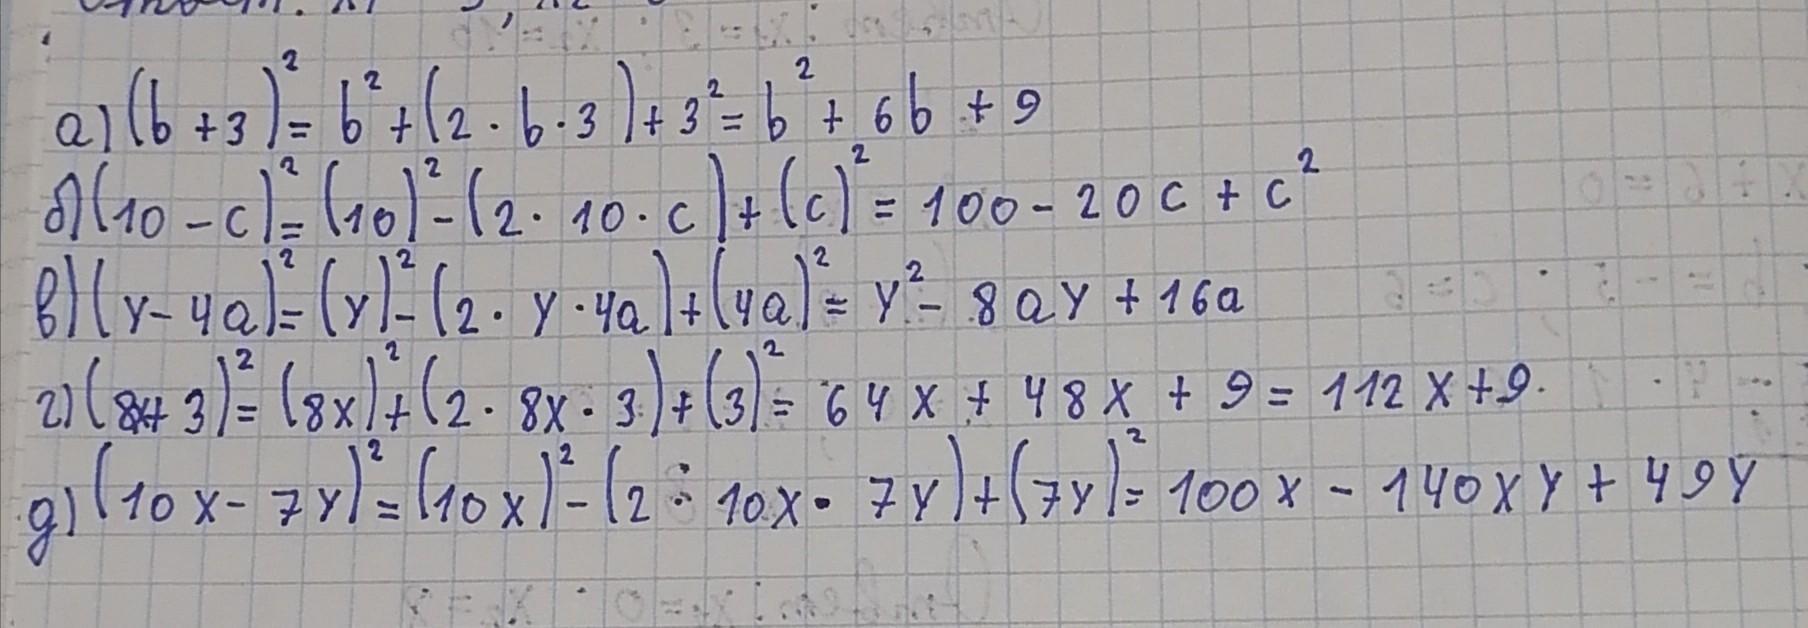 а) (b + 3)² = b² + (2 · b · 3) + 3² = b² + 6b + 9
б) (10 - c)² = (10)² - (2 · 10 · c) + (c)² = 100 - 20c + c²
в) (y - 4a)² = (y)² - (2 · y · 4a) + (4a)² = y² - 8ay + 16a
г) (8x + 3)² = (8x)² + (2 · 8x · 3) + (3)² = 64x + 48x + 9 = 112x + 9.
д) (10x - 7y)² = (10x)² - (2 · 10x · 7y) + (7y)² = 100x - 140xy + 49y